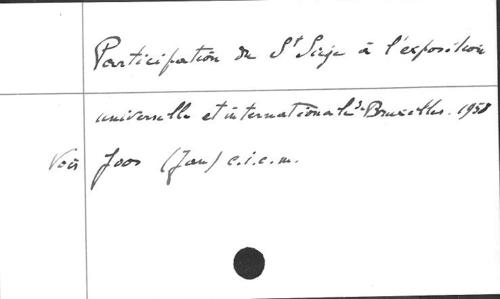 Participation du St Siège à l'exposition
universelle et internationale de Bruxelles. 1958
Voir Joos (Jan) c.i.c.m.